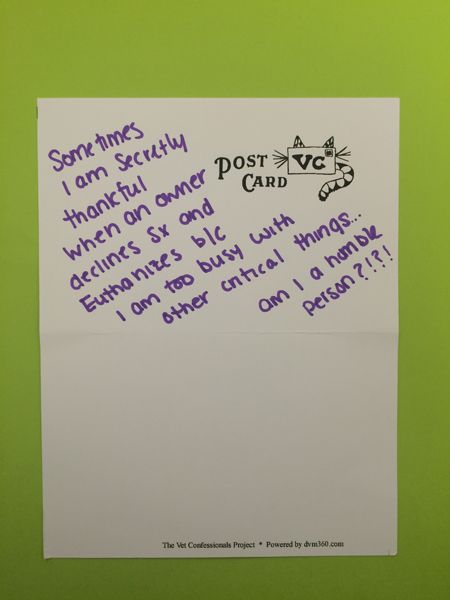 Sometimes
I am secretly
thankful
when an owner
declines Sx and
Euthanizes b/c
I am too busy with
other critical things...
am I a horrible
person?!?!
POST
CARD
VC
The Vet Confessionals Project * Powered by dvm360.com